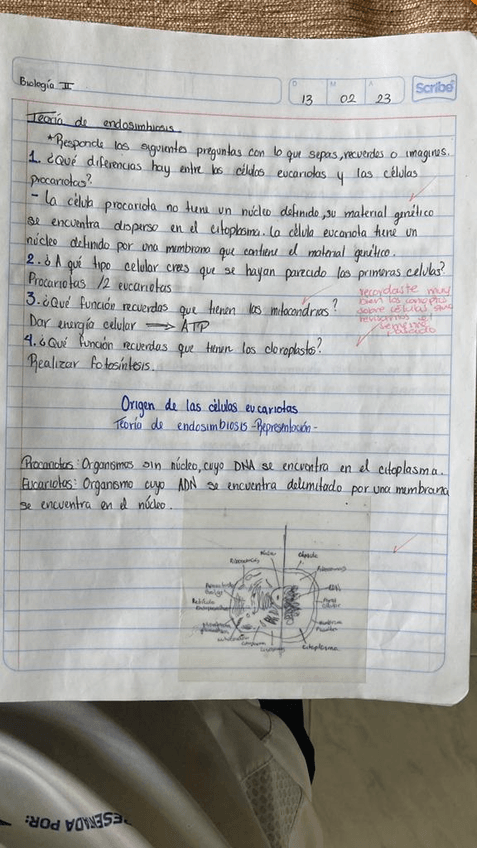 Biología II
D M A
13 02 23
Scribe
Teoría de endosimbiosis
*Responde las siguientes preguntas con lo que sepas, recuerdes o imagines.
1. ¿Qué diferencias hay entre las células eucariotas y las células
procariotas?
- La célula procariota no tiene un núcleo definido, su material genético
se encuentra disperso en el citoplasma. La célula eucariota tiene un
núcleo definido por una membrana que contiene el material genético.
2. ¿A qué tipo celular crees que se hayan parecido las primeras células?
Procariotas /2 eucariotas
3. ¿Qué función recuerdas que tienen las mitocondrias?
Dar energía celular ⟹ ATP
recordaste muy
bien los conceptos
sobre células que
revisamos el
semestre
pasado
4. ¿Qué función recuerdas que tienen los cloroplastos?
Realizar fotosíntesis.
Origen de las células eucariotas
Teoría de endosimbiosis -Representación-
Procariotas: Organismos sin núcleo, cuyo DNA se encuentra en el citoplasma.
Eucariotas: Organismo cuyo ADN se encuentra delimitado por una membrana
se encuentra en el núcleo.
Cápsula
Ribosomas
Citoplasma
ESENTADA POR: